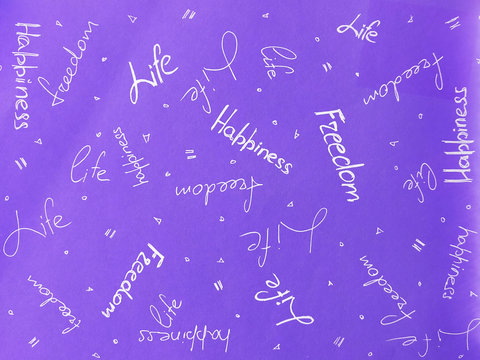 Happiness
freedom
Life
Life
life
Life
freedom
Happiness
Happiness
Freedom
life
happiness
freedom
life
Life
Life
Freedom
happiness
freedom
Life
freedom
life
happiness
life